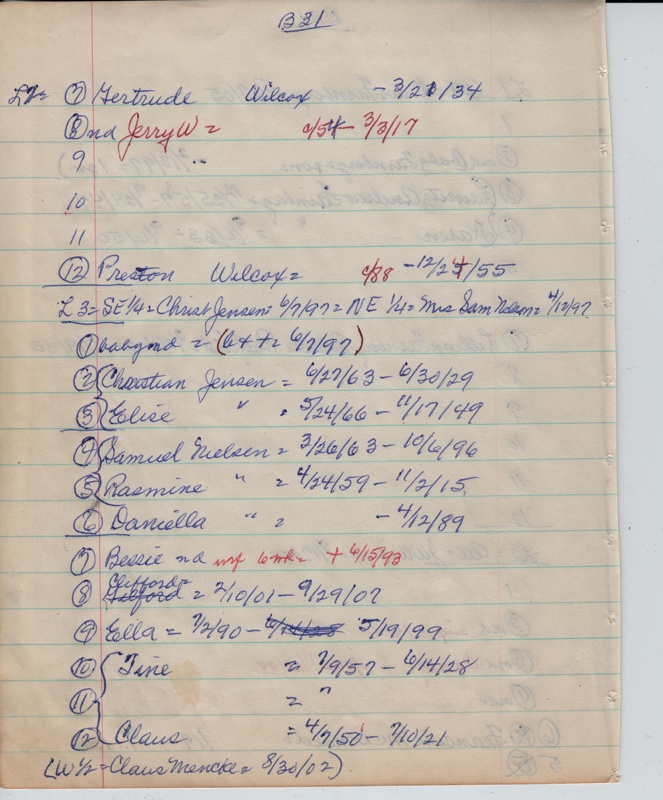 B31
L2= ⑦ Gertrude Wilcox - 3/21/34
⑧ nd Jerry W = c/54 - 3/3/17
9
10
11
⑫ Preston Wilcox = c/88 - 12/24/55
L3 = SE 1/4 = Christ Jensen = 6/7/97 = NE 1/4 = Mrs Sam Nelson = 4/12/97
① baby nd = (b + + = 6/7/97)
② Christian Jensen = 6/27/63 - 6/30/29
③ Elise " = 5/24/66 - 11/17/49
④ Samuel Nielsen = 3/26/63 - 10/6/96
⑤ Rasmine " = 4/24/59 - 11/2/15
⑥ Daniella " = - 4/12/89
⑦ Bessie nd inf 6 mk = + 6/15/93
Clifford =
⑧ = 2/10/01 - 9/29/07
⑨ Ella = 7/2/90 - 5/19/99
⑩ Tine = 7/9/57 - 6/14/28
⑪ = "
⑫ Claus = 4/7/50 - 7/10/21
(W 1/2 = Claus Mencke = 8/30/02)